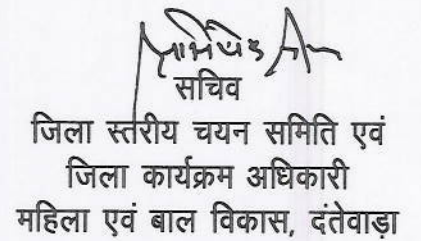 सचिव
जिला स्तरीय चयन समिति एवं
जिला कार्यक्रम अधिकारी
महिला एवं बाल विकास, दंतेवाड़ा